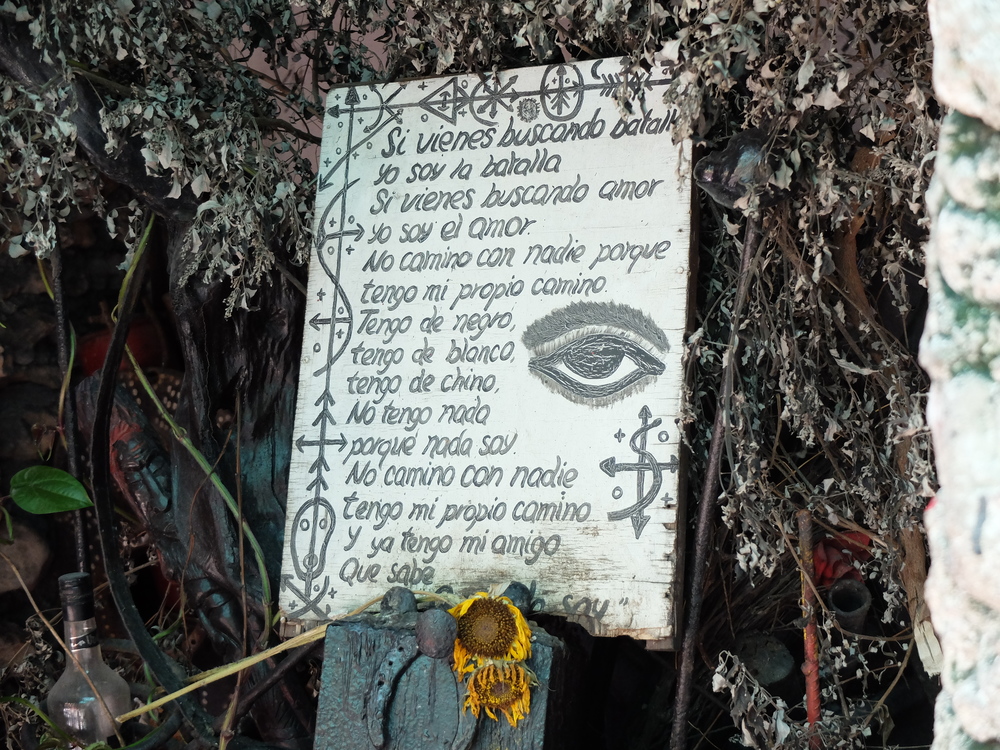 Si vienes buscando batall
yo soy la batalla
Si vienes buscando amor
yo soy el amor.
No camino con nadie porque
tengo mi propio camino.
Tengo de negro,
tengo de blanco,
tengo de chino,
No tengo nada
porque nada soy.
No camino con nadie
tengo mi propio camino
Y ya tengo mi amigo
Que sabe
soy"